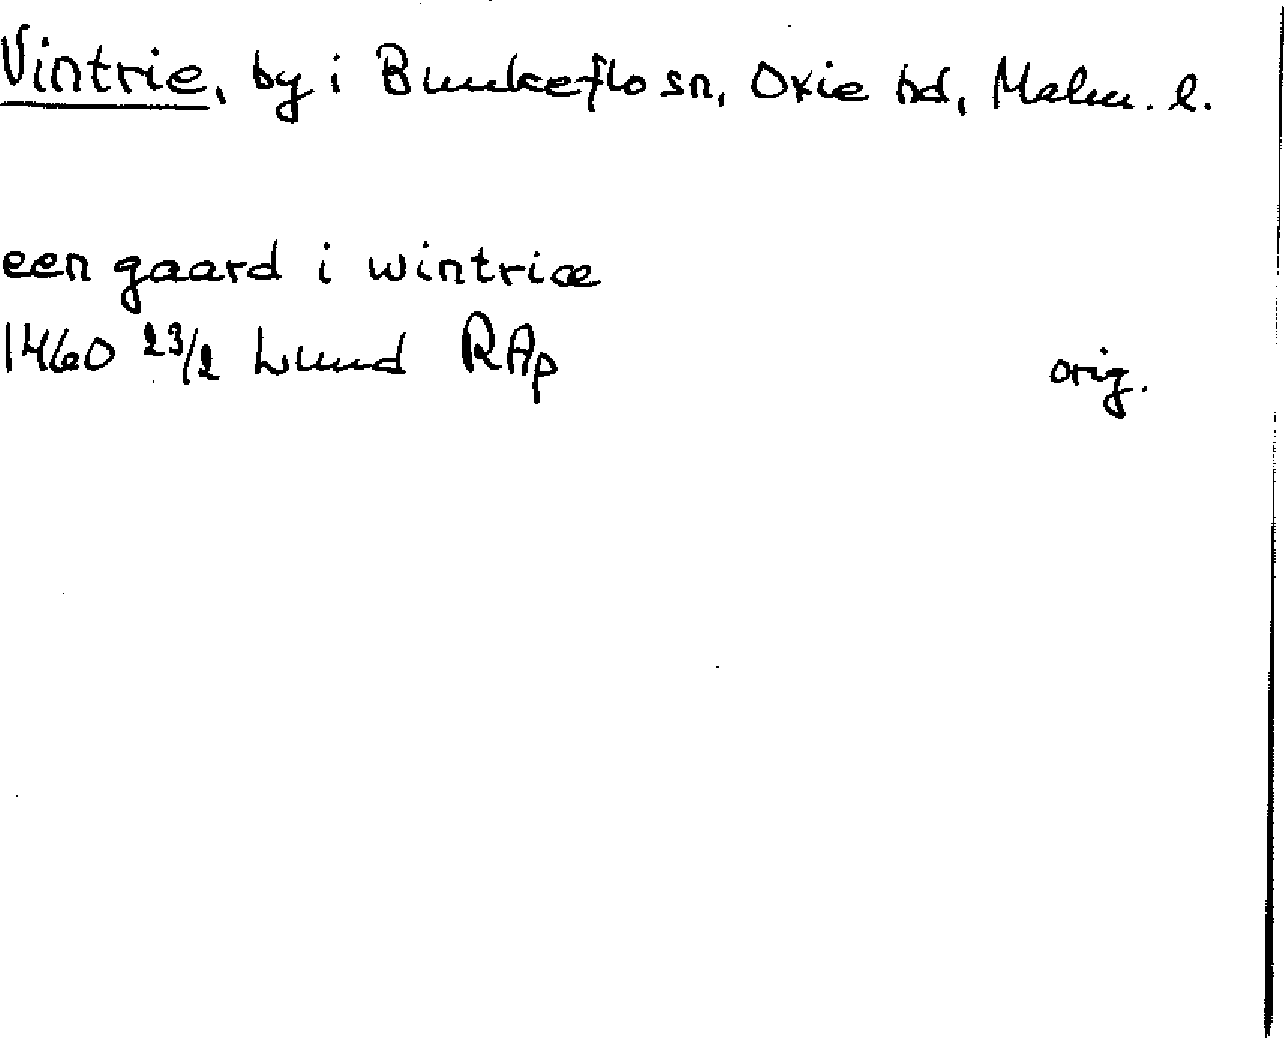 Vintrie, by i Bunkeflo sn, Oxie hd, Malm. l.
een gaard i wintriæ
1460 23/2 Lund RAp
orig.